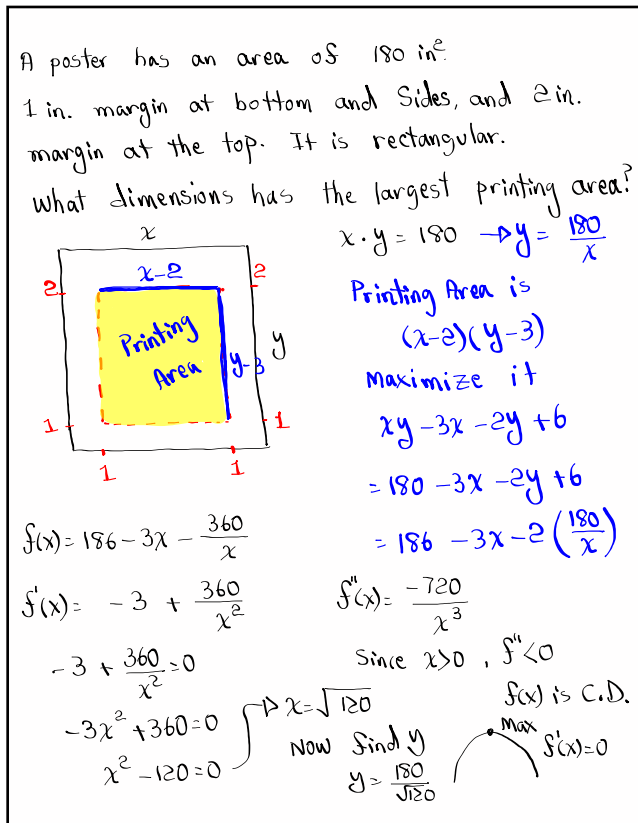 A poster has an area of 180 in².
1 in. margin at bottom and Sides, and 2 in.
margin at the top. It is rectangular.
What dimensions has the largest printing area?
x
x-2
2
2
Printing
Area
y-3
y
1
1
1
1
x · y = 180 → y = 180/x
Printing Area is
(x-2)(y-3)
Maximize it
xy -3x -2y +6
= 180 -3x -2y +6
= 186 -3x -2(180/x)
f(x) = 186 - 3x - 360/x
f'(x) = -3 + 360/x²
-3 + 360/x² = 0
-3x² + 360 = 0
x² - 120 = 0
→ x = √120
Now find y
y = 180/√120
f''(x) = -720/x³
Since x>0, f''<0
f(x) is C.D.
Max
f'(x)=0